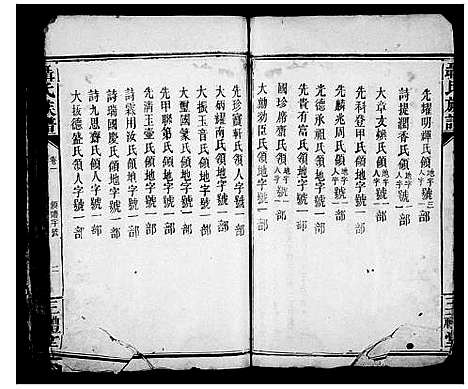 聶氏族譜
三禮堂
先耀明輝氏領地字號三人字號一部
詩提潤香氏領地字人字號一部
大章女娛氏領地字號一部
先科登甲氏領地字人字號一部
先麟兆周氏領人字號一部
光德永祖氏領人字號一部
國珍席齋氏領地字人字號一部
大勳効臣氏領地字人字號一部
先珍霞軒氏領人字號一部
大炳耀南氏領地字號一部
大振玉音氏領地字號一部
大璽國篆氏領地字號一部
先甲聯第氏領地字號一部
先清玉壺氏領地字號一部
詩霖用汝氏領地字號一部
詩瑞國慶氏領地字號一部
詩九思齋氏領人字號一部
大拔德益氏領人字號一部
聶氏族譜
卷一
領譜字號
二
三禮堂